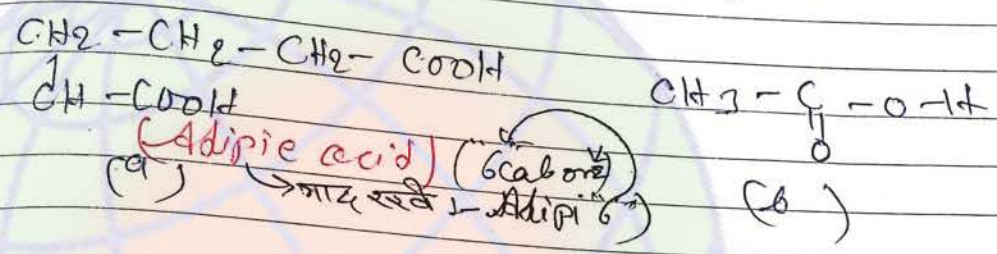 CH2 - CH2 - CH2 - COOH
CH - COOH
CH3 - C - O - H
O
(Adipic acid) (6 cabone)
(a) → याद रखें :- Adipi "6") (b)